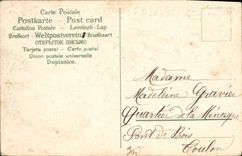 Carte Postale
Postkarte - Post card
Cartolina Postale - Levelező-Lap
Brefkort - Weltpostverein - Briefkaart
ОТКРЫТОЕ ПИСЬМО
Tarjeta postal - Carte postal
Union postale universelle
Dopisnice.
Madame
Madeleine Gravier
Quartier de la
Pont de Bois
Toulon